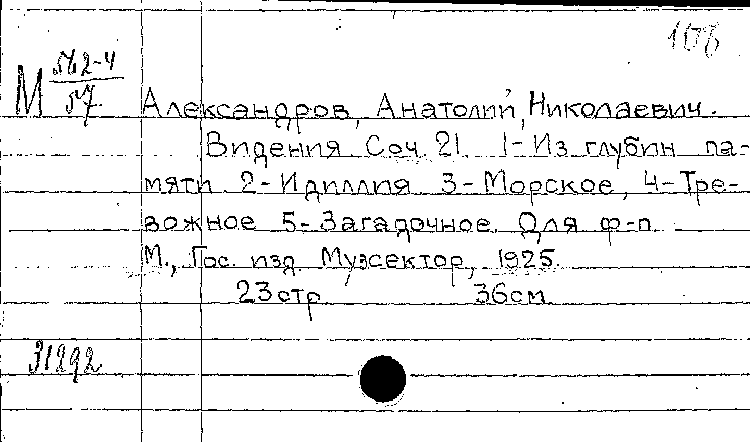 108
М 562-4
57
Александров, Анатолий, Николаевич.
Видения Соч. 21. 1-Из глубин па-
мяти. 2-Идиллия 3-Морское, 4-Тре-
вожное 5-Загадочное. Для ф-п.
М., Гос. изд. Музсектор, 1925.
23стр. 36см.
31292